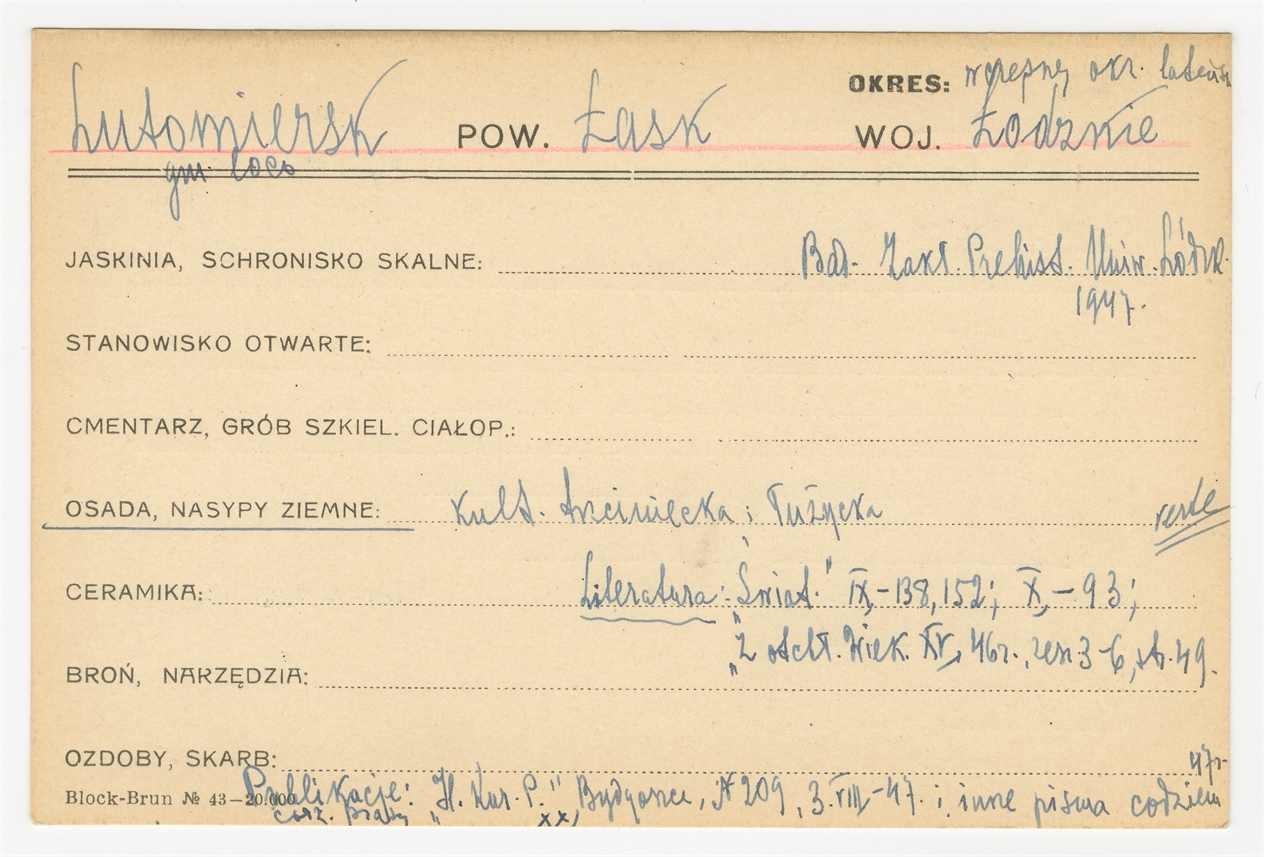 OKRES: wczesny okr. lateńsk
Lutomiersk POW. Łask WOJ. Łódzkie
gm. loco
JASKINIA, SCHRONISKO SKALNE: Bad. Zakł. Prehist. Uniw. Łódzk.
1947.
STANOWISKO OTWARTE:
CMENTARZ, GRÓB SZKIEL. CIAŁOP.:
OSADA, NASYPY ZIEMNE: Kult. trzciniecka i łużycka verte
CERAMIKA: Literatura: "Świat." IX,-138,152; X,-93;
"Z otchł. Wiek. XV, 46r., zesz. 3-6, str. 49.
BROŃ, NARZĘDZIA:
OZDOBY, SKARB: 47r.
Publikacje: "Il. Kur. P." Bydgoszcz, № 209, 3.VIII-47. i inne pisma codzien
Block-Brun № 43—20.000
xx)